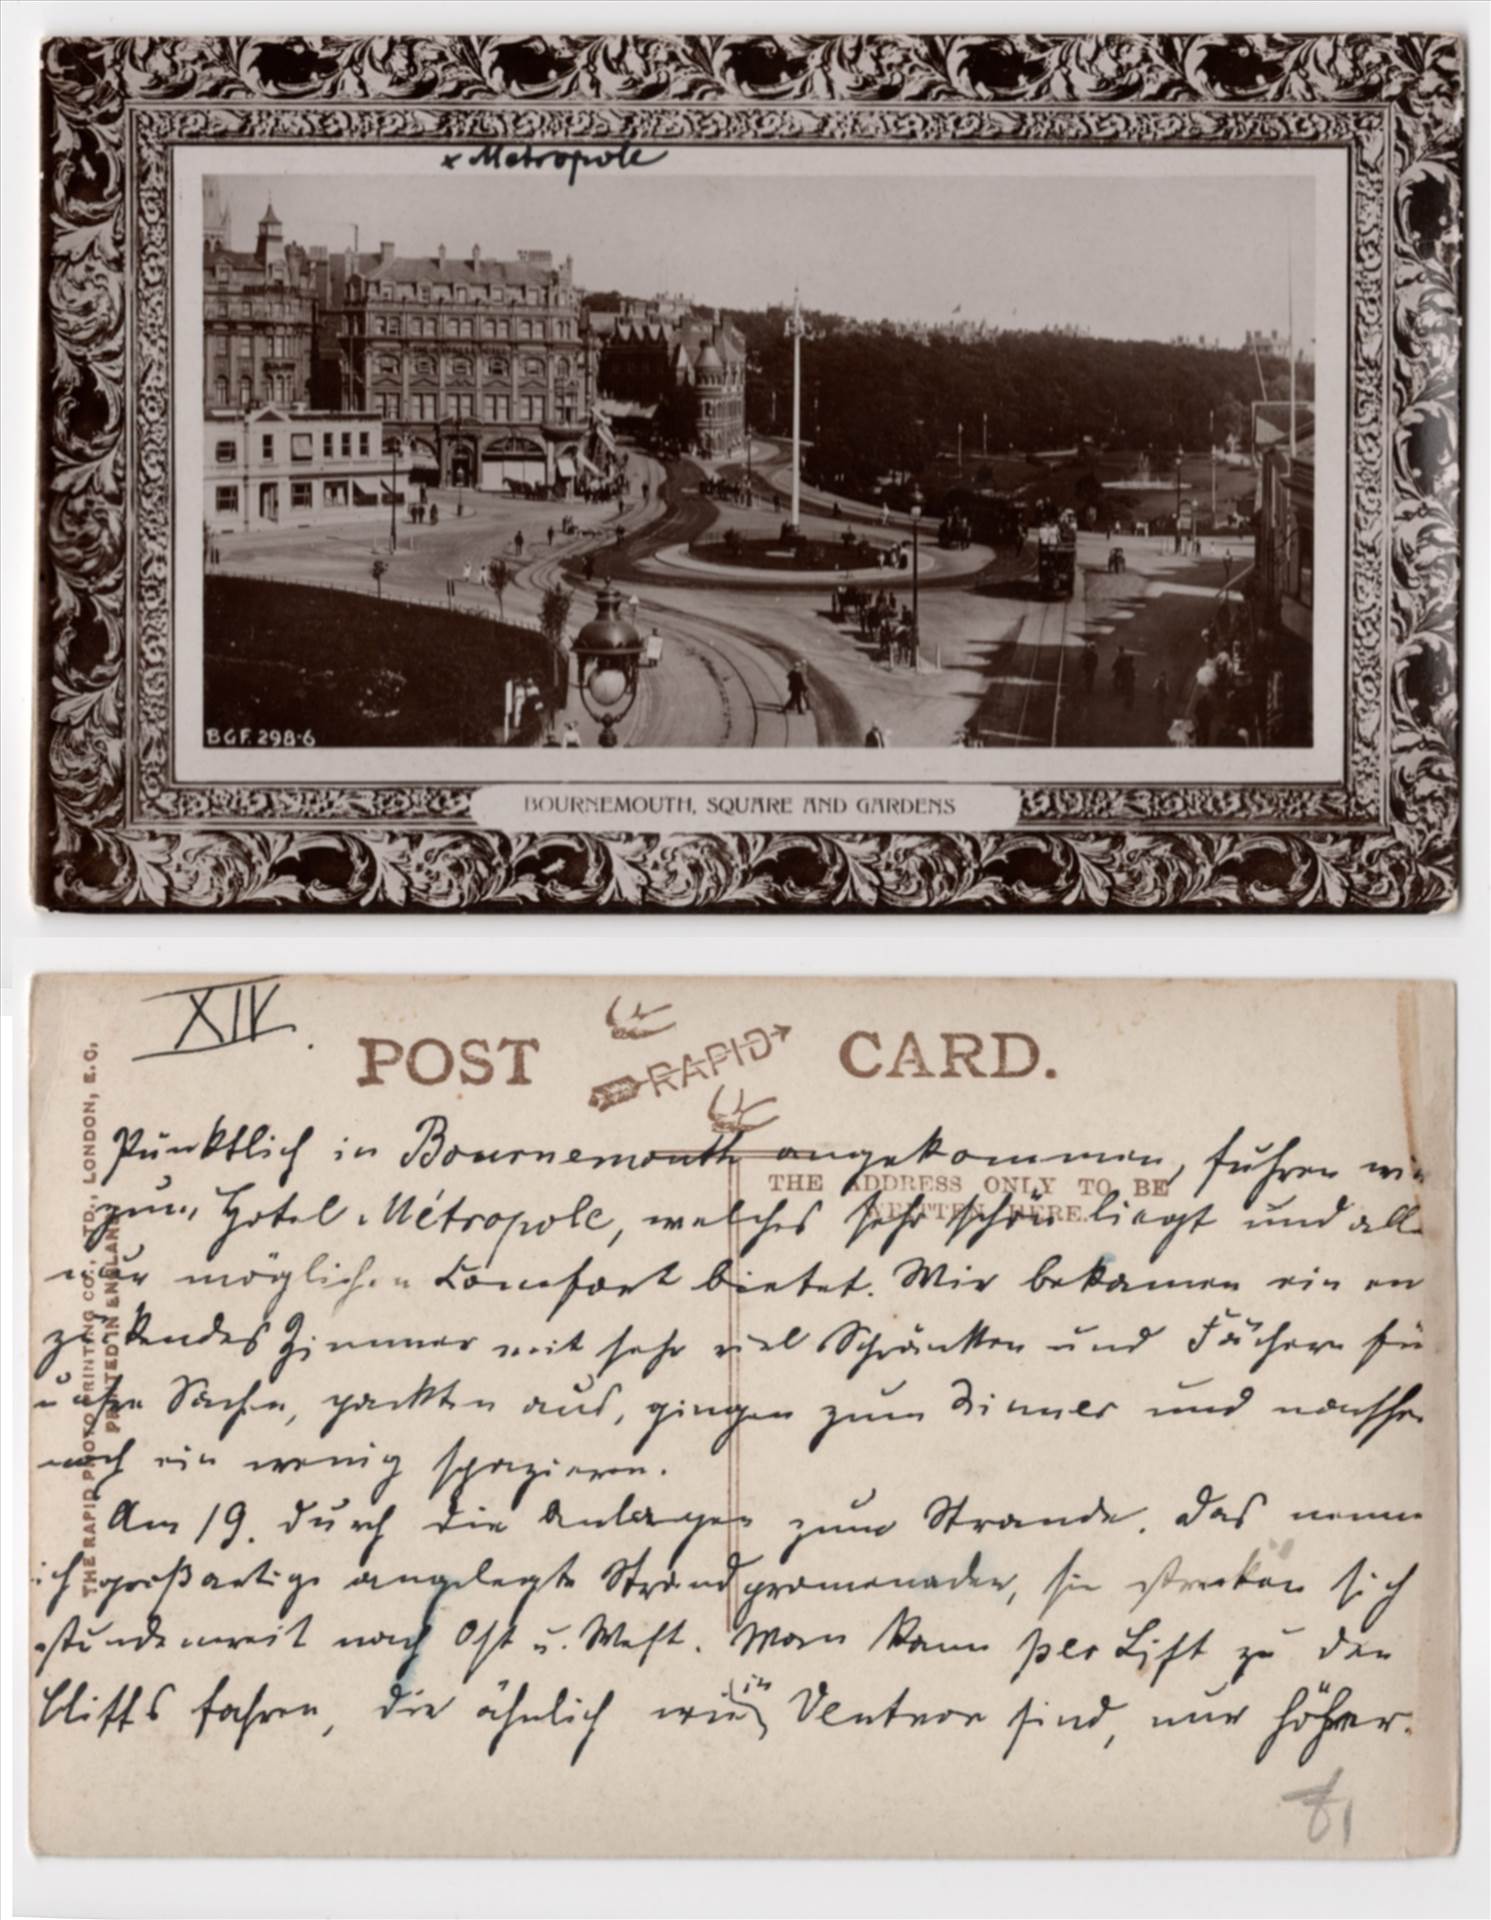 x Metropole
B.G.F. 298-6
BOURNEMOUTH, SQUARE AND GARDENS
XIV.
POST CARD.
RAPID
THE ADDRESS ONLY TO BE
WRITTEN HERE.
THE RAPID PHOTO PRINTING CO., LTD., LONDON, E.C.
PRINTED IN ENGLAND
Pünktlich in Bournemouth angekommen, fuhren wir
zum Hotel Métropole, welches sehr schön liegt und all
nur möglichen Comfort bietet. Wir bekamen ein en
zückendes Zimmer mit sehr viel Schränken und Fächern für
unsere Sachen, packten aus, gingen zum Dinner und nachher
noch ein wenig spazieren.
Am 19. durch die Anlagen zum Strande. Das nenne
ich großartige angelegte Strandpromenaden, sie strecken sich
stundenweit nach Ost u. West. Man kann per Lift zu den
Cliffs fahren, die ähnlich wie in Ventnor sind, nur höher.